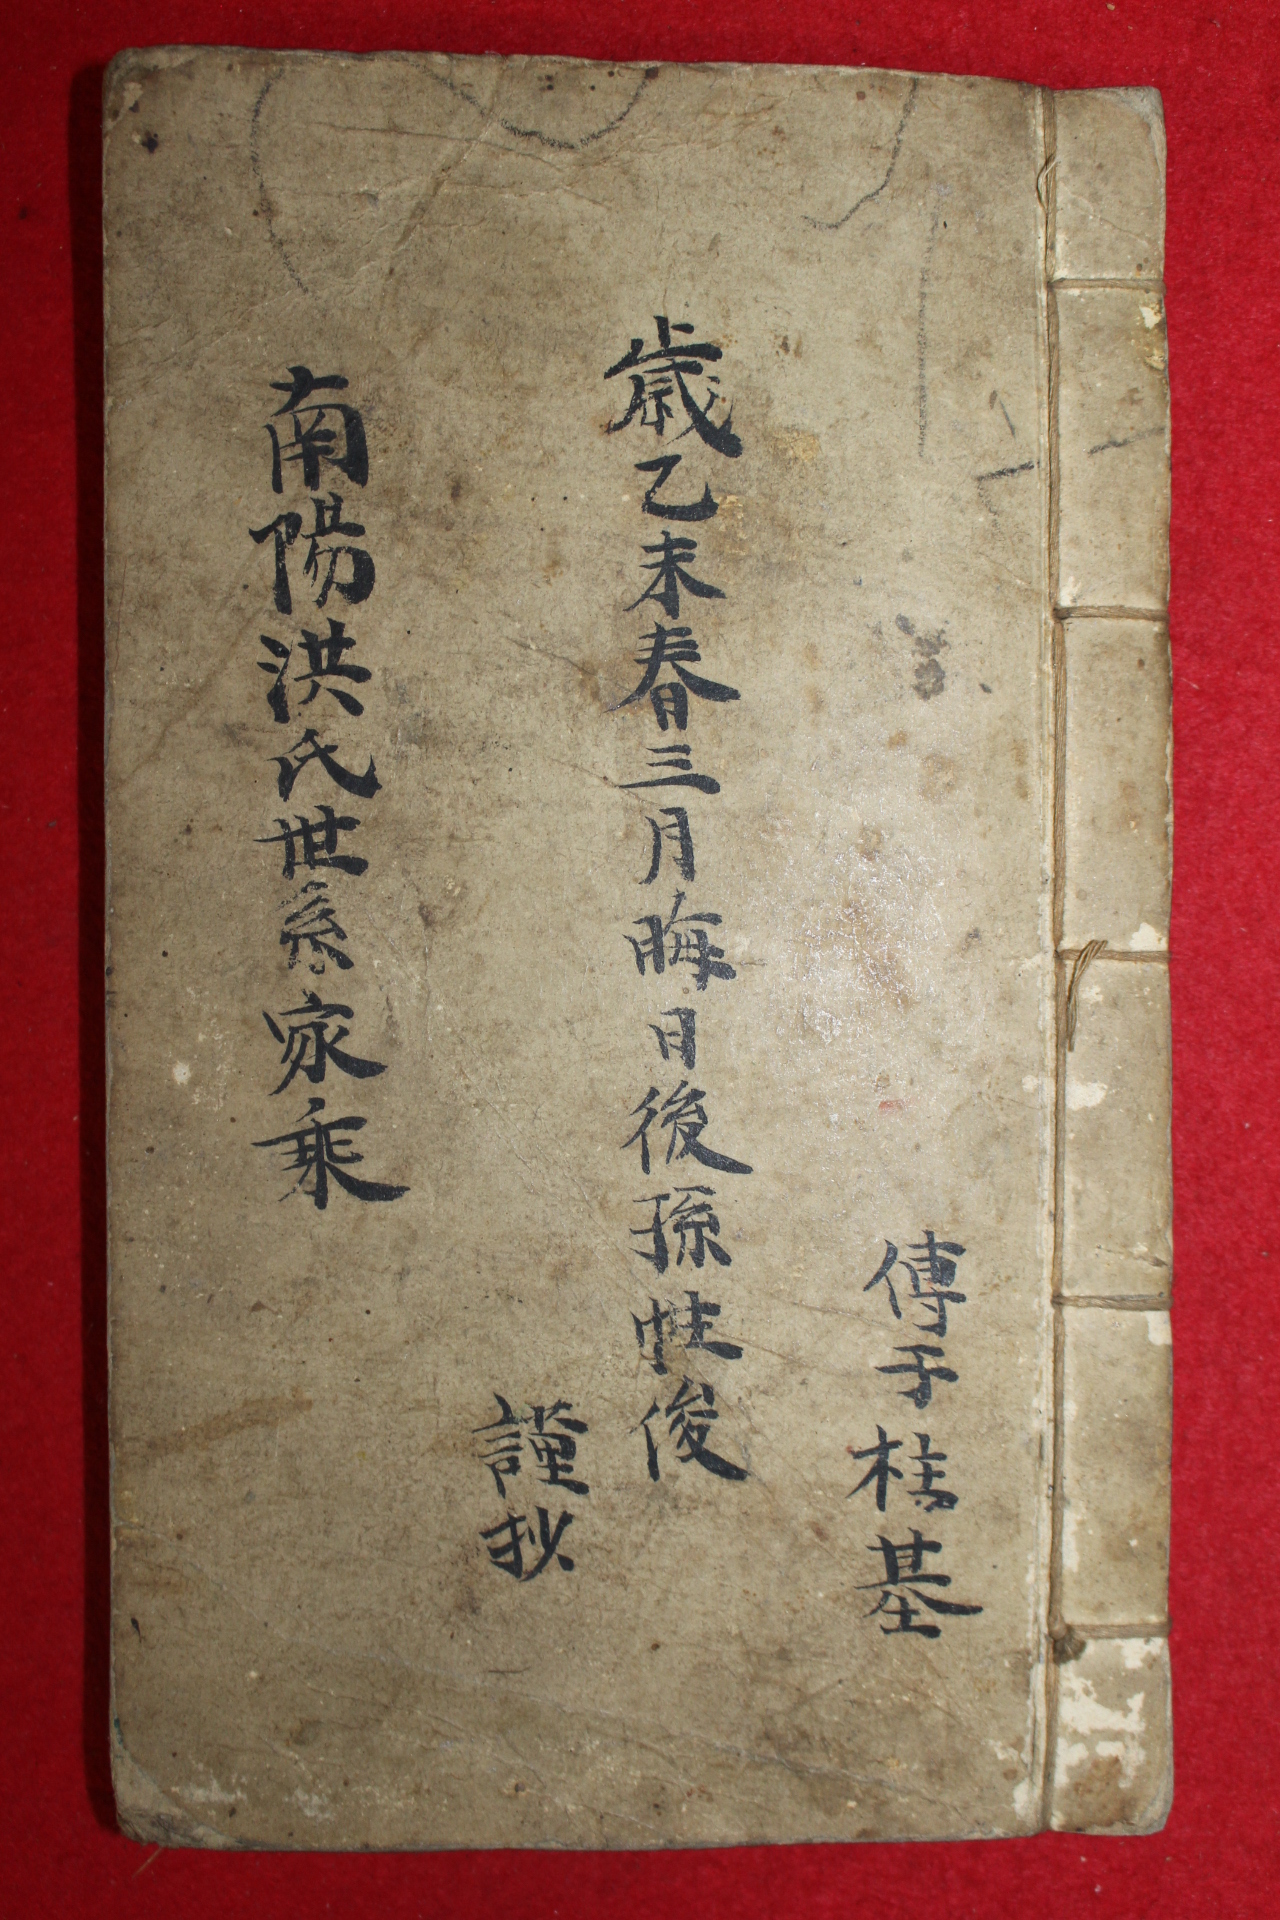 傳于桂基
歲乙未春三月晦日後孫性俊
謹抄
南陽洪氏世系家乘